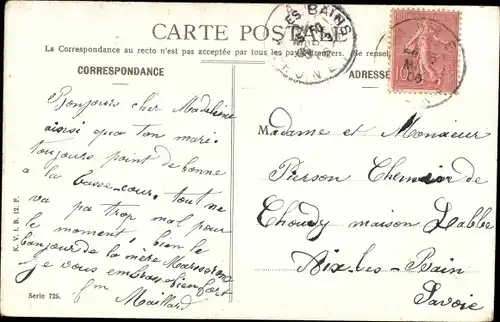 CARTE POSTALE
La Correspondance au recto n'est pas acceptée par tous les pays étrangers. Se rensei
CORRESPONDANCE
ADRESSE
Bonjours cher Madeleine
ainsi que ton mari.
toujours point de bonne
a la basse-cour, tout ne
va pa trop mal pour
le moment, bien le
bonjour de la mère
je vous embrasse bien fort
Maillard
Madame et Monsieur
Pierson Chemin de
Choudy maison Labbe
Aix-les-Bain
Savoie
K. V. I. B. 12. F.
Serie 725.
BAINS
10